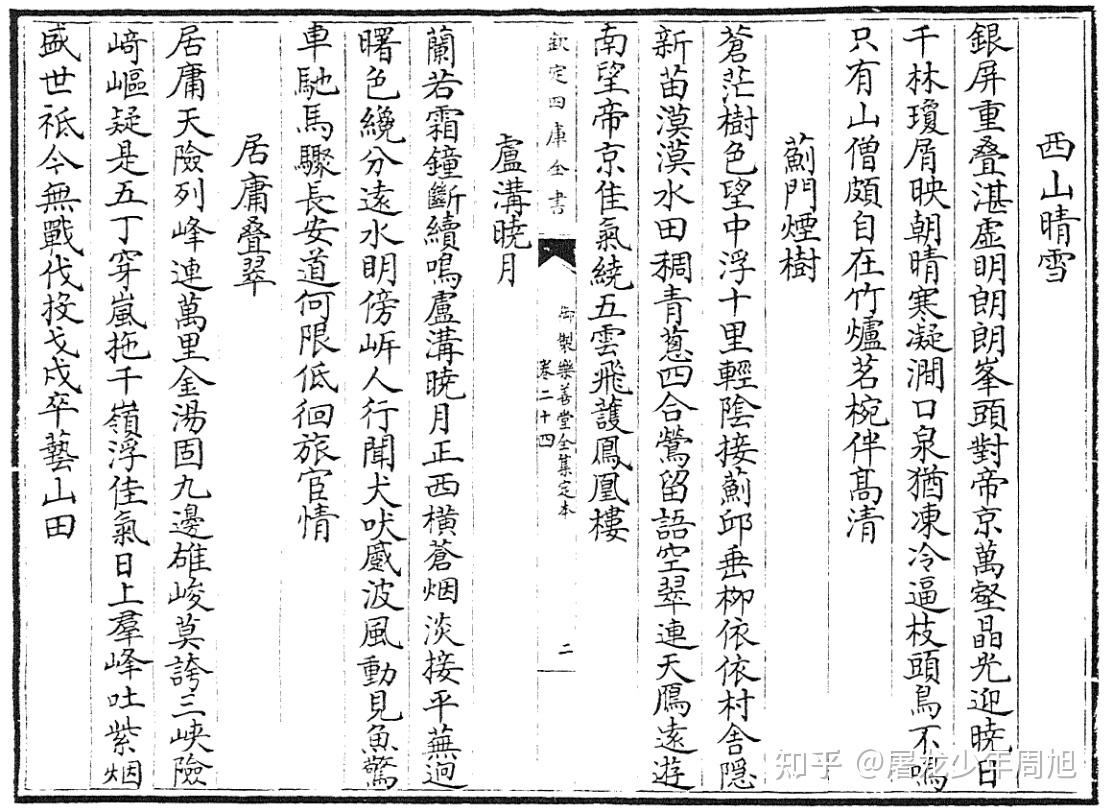 西山晴雪
銀屏重叠湛虚明朗朗峯頭對帝京萬壑晶光迎曉日
千林瓊屑映朝晴寒凝澗口泉猶凍冷逼枝頭鳥不鳴
只有山僧頗自在竹爐茗椀伴髙清
薊門煙樹
蒼茫樹色望中浮十里輕陰接薊邱垂栁依依村舎隠
新苗漠漠水田稠青葱四合鶯留語空翠連天鴈遠遊
南望帝京佳氣繞五雲飛䕶鳳凰樓
欽定四庫全書
御製樂善堂全集定本
卷二十四
二
盧溝曉月
蘭若霜鐘斷續鳴盧溝曉月正西横蒼烟淡接平蕪迥
曙色纔分遠水明傍㟁人行聞犬吠蹙波風動見魚驚
車馳馬驟長安道何限低徊旅宦情
居庸叠翠
居庸天險列峰連萬里金湯固九邊雄峻莫誇三峽險
崎嶇疑是五丁穿嵐拖千嶺浮佳氣日上羣峰吐紫烟
盛世祗今無戰伐投戈戍卒藝山田
知乎 @屠龙少年周旭